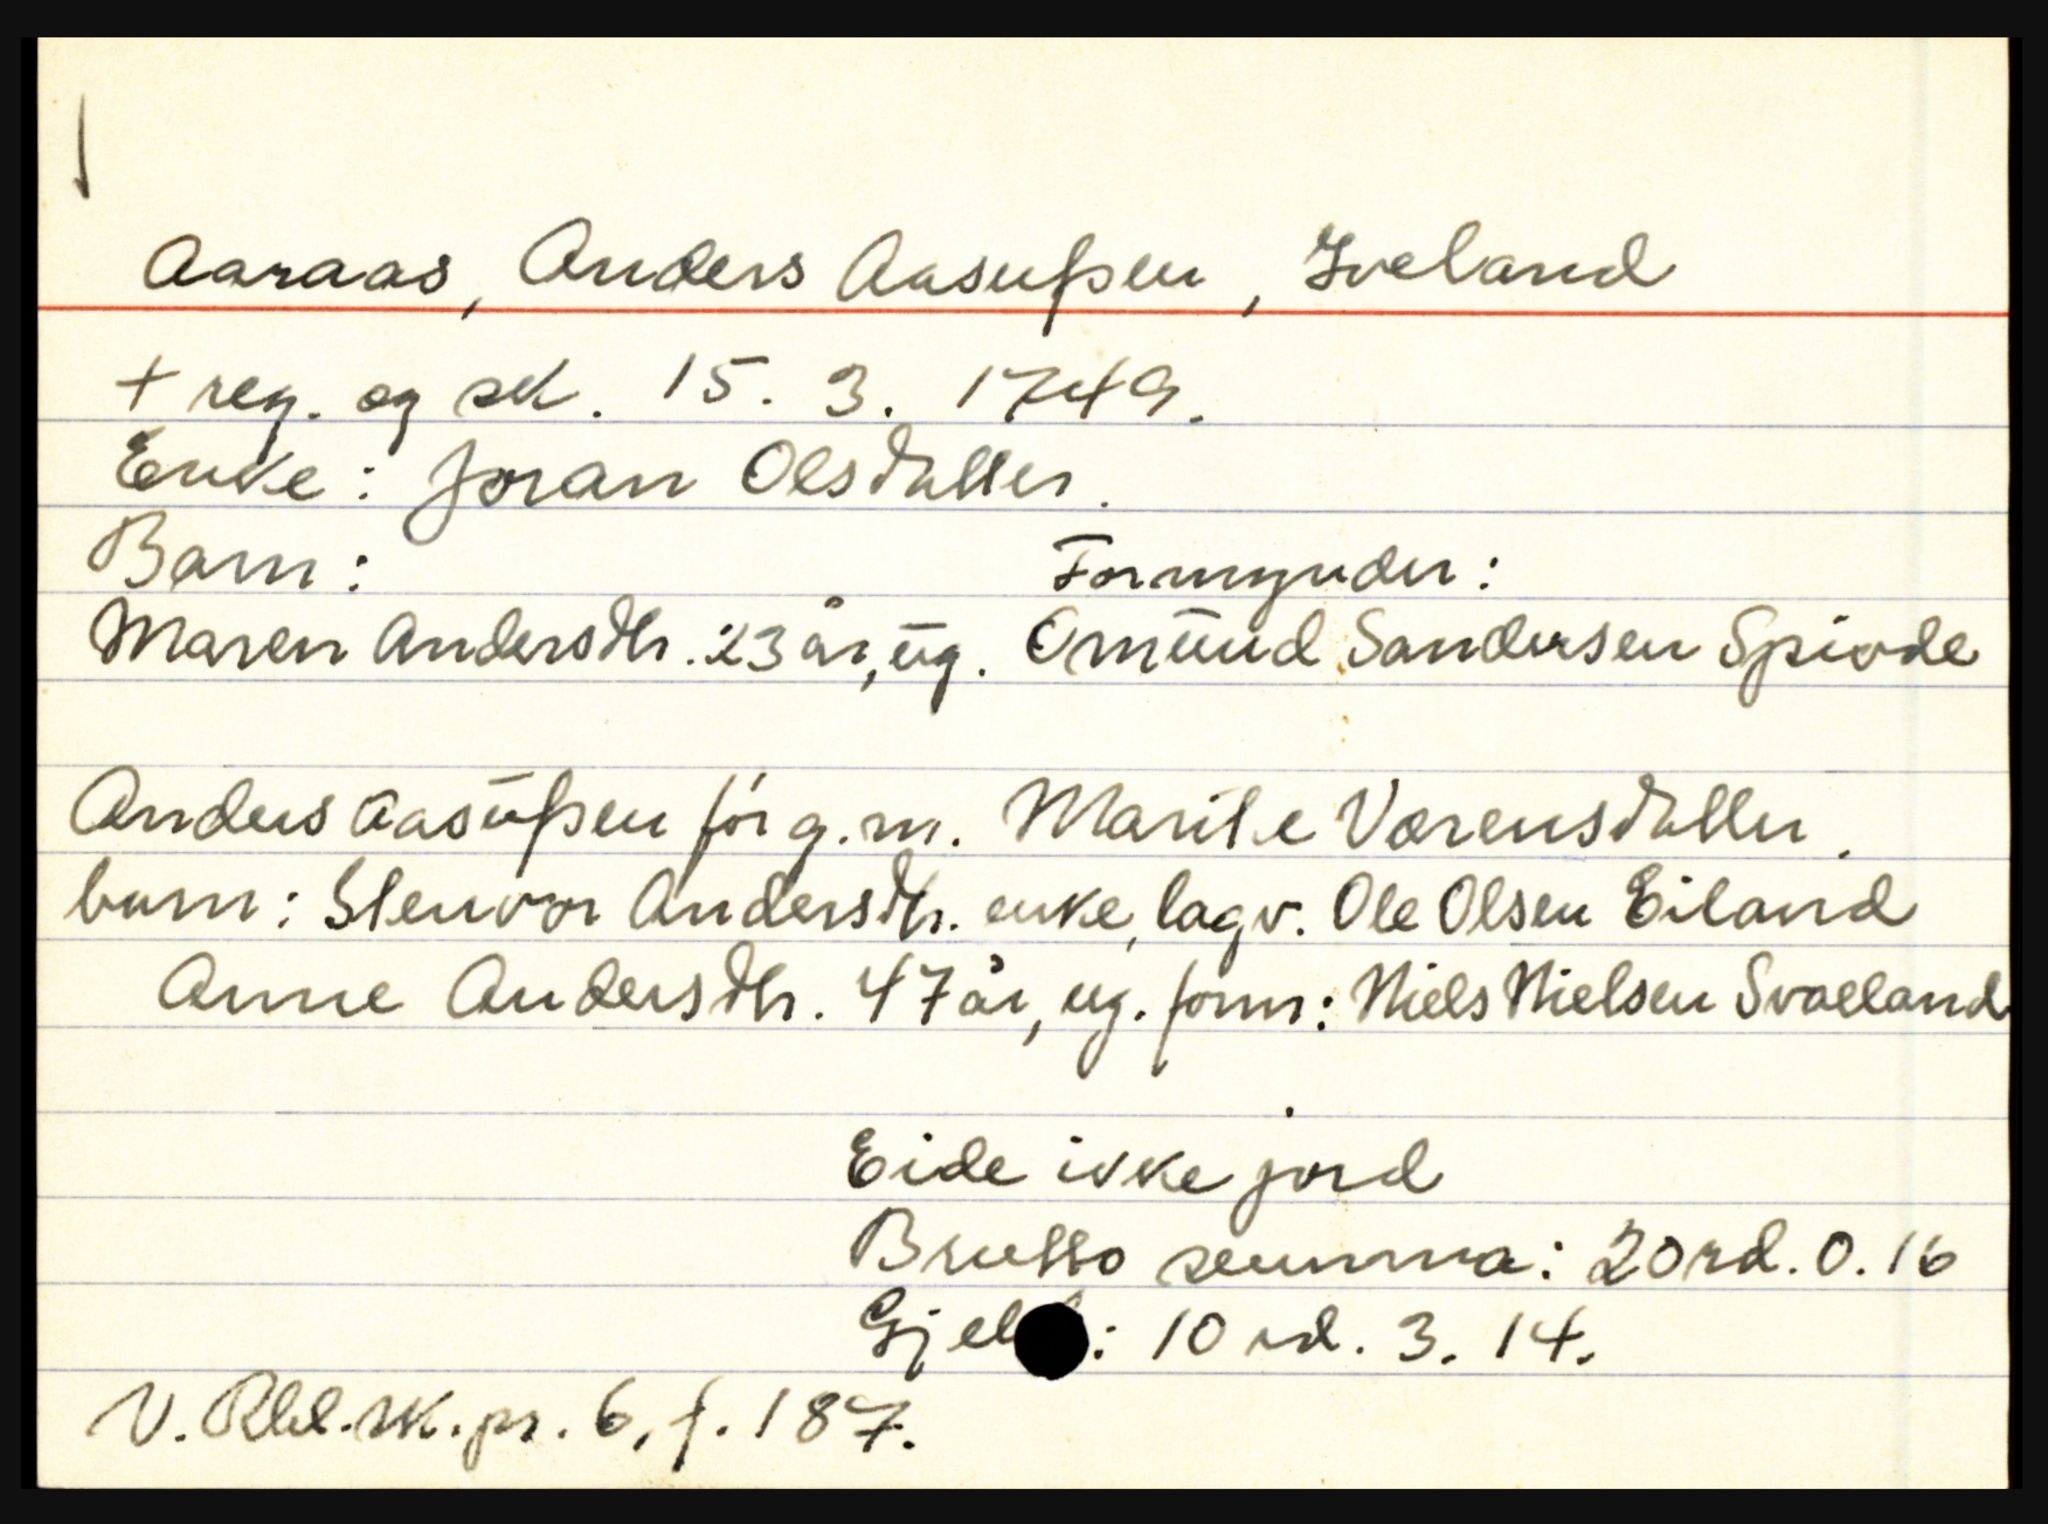 Aaraas, Anders Aasulfsen, Iveland
+ reg. og sk. 15. 3. 1749.
Enke: Joran Olsdatter.
Barn: Formynder:
Maren Andersdtr. 23 år, ug. Omund Sandersen Spivde
Anders Aasulfsen før g.m. Marite Vorensdatter.
barn: Stenvor Andersdtr. enke, lagv. Ole Olsen Eiland
Anne Andersdtr. 47 år, ug. form: Niels Nielsen Svaeland
Eide ikke jord
Brutto summa: 20 rd. 0. 16
Gjeld: 10 rd. 3. 14.
V. Rbl. sk. pr. 6, f. 187.